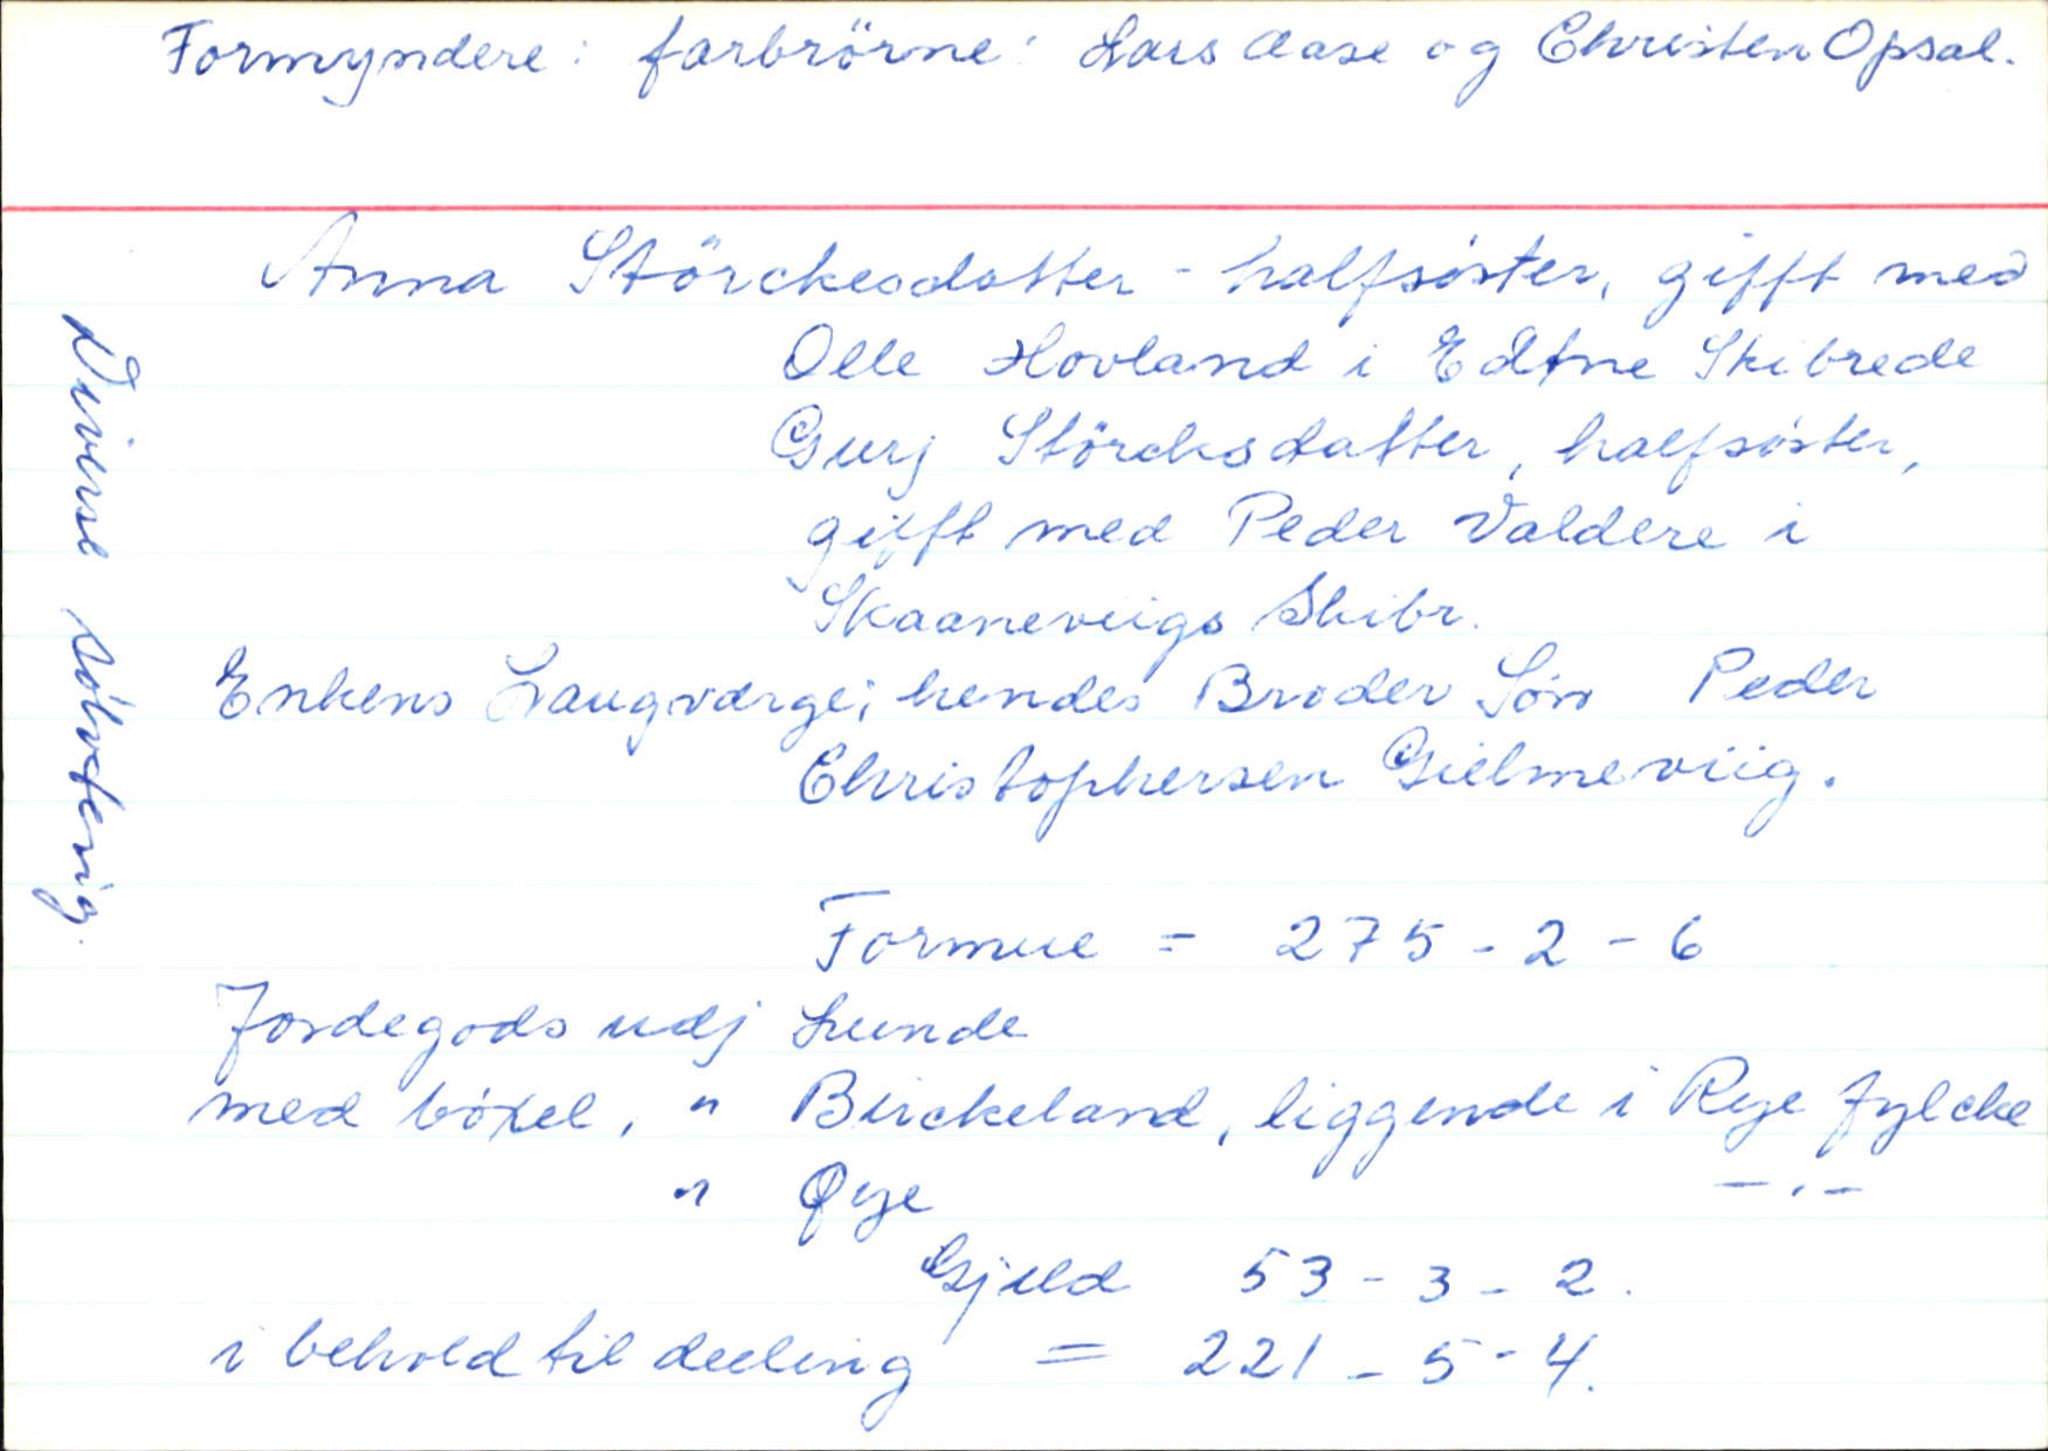 Formyndere: farbrörne: Lars Aase og Christen Opsal.
Anna Störckesdatter - halfsöster, gifft med
Olle Hovland i Edtne Skibrede
Gurj Störcksdatter, halfsöster,
gifft med Peder Valdere i
Skaaneviigs Skibr.
Enkens Laugværge; hendes Broder Sön Peder
Christophersen Gielmeviig.
Formue = 275 - 2 - 6
Jordegods udj Lunde
med böxel, " Birckeland, liggende i Rye fylcke
" Øye - " -
Gjeld 53 - 3 - 2.
i behold til deeling = 221 - 5 - 4.
Diverse sölvtøig.